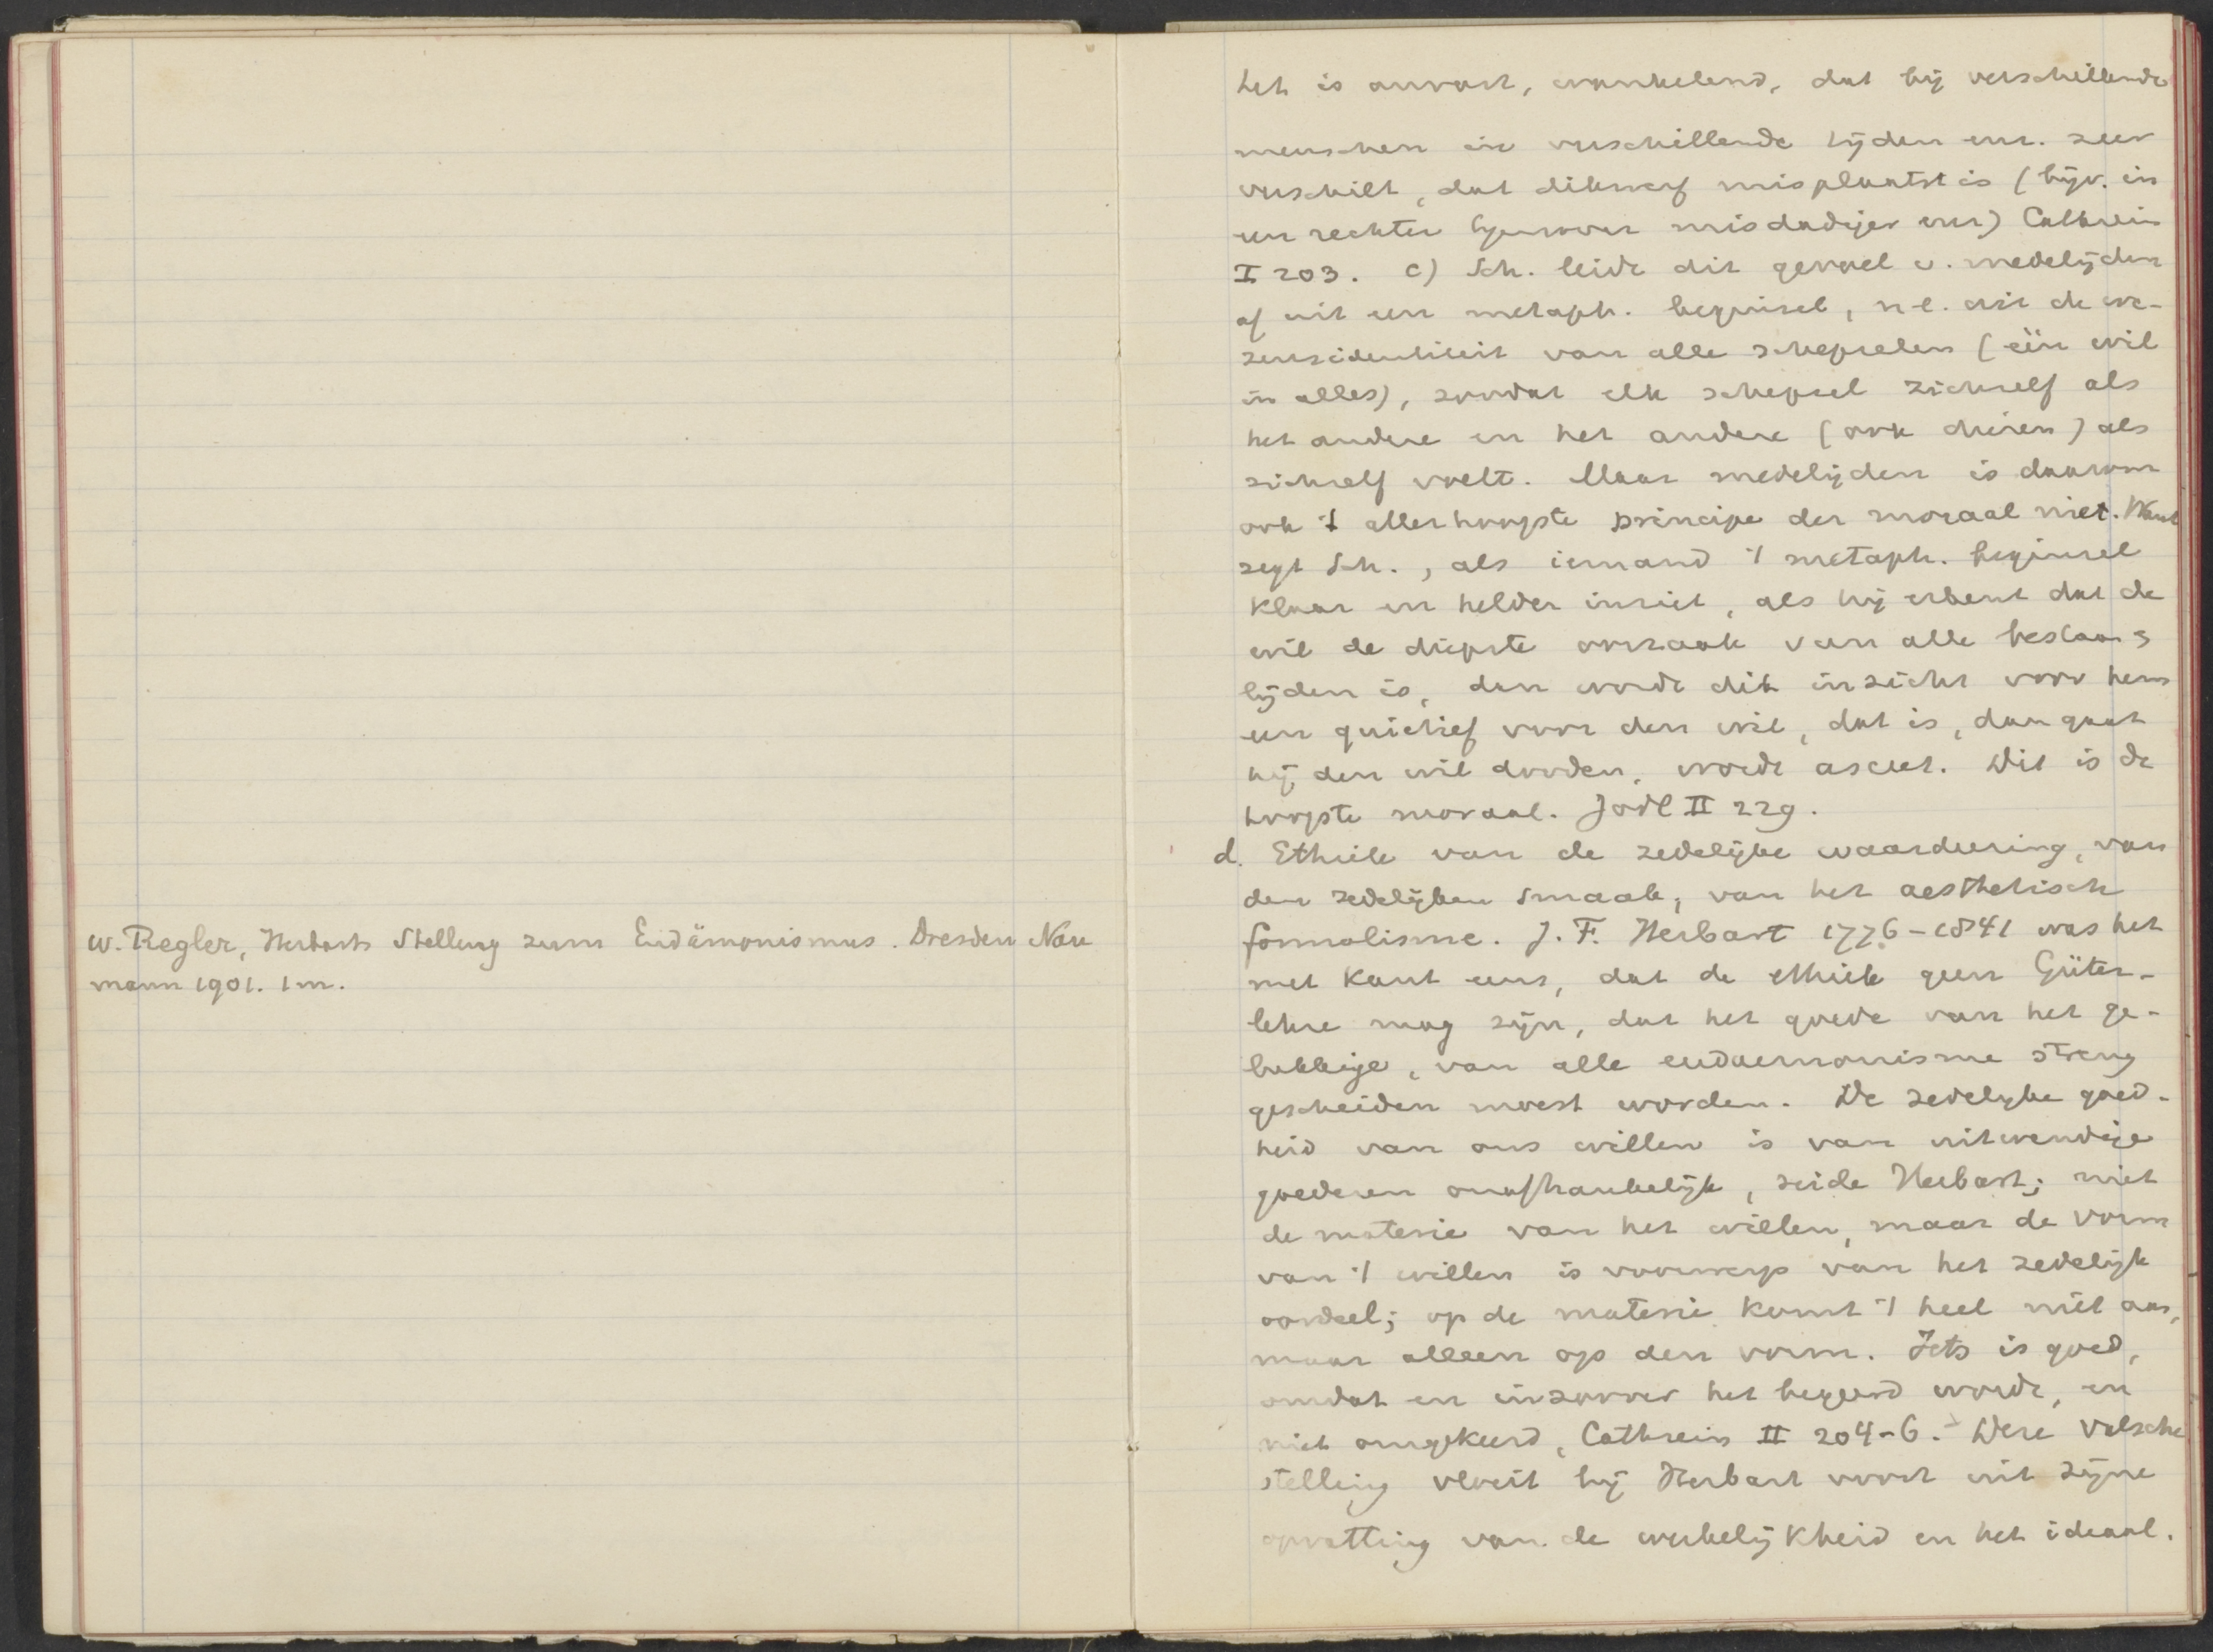 W. Regler, Herbarts Stellung zum Eudämonismus. Dresden Nau
mann 1901. 1 m.
het is onvast, wankelend, dat bij verschillende
menschen in verschillende tijden enz. zeer
verschilt, dat dikwerf misplaatst is (bijv. in
een rechter tegenover misdadiger enz) Cathrein
I 203. c) Sch. leidt dit gevoel v. medelijden
af uit een metaph. beginsel, n.l. uit de we-
zensidentiteit van alle schepselen (één wil
in alles), zoodat elk schepsel zichzelf als
het andere en het andere (ook dieren) als
zichzelf voelt. Maar medelijden is daarom
ook 't allerhoogste principe der moraal niet. Want
zegt Sch., als iemand 't metaph. beginsel
klaar en helder inziet, als hij erkent dat de
wil de diepste oorzaak van alle bestaan &
lijden is, dan wordt dit inzicht voor hem
een quietief voor den wil, dat is, dan gaat
hij den wil dooden, wordt asceet. Dit is de
hoogste moraal. Jodl II 229.
d. Ethiek van de zedelijke waardeering, van
den zedelijken smaak, van het aesthetisch
formalisme. J. F. Herbart 1776-1841 was het
met Kant eens, dat de ethiek geen Güter-
lehre mag zijn, dat het goede van het ge-
lukkige, van alle eudaemonisme streng
gescheiden moest worden. De zedelijke goed-
heid van ons willen is van uitwendige
goederen onafhankelijk, zeide Herbart; niet
de materie van het willen, maar de vorm
van 't willen is voorwerp van het zedelijk
oordeel; op de materie komt 't heel niet aan,
maar alleen op den vorm. Iets is goed,
omdat en inzoover het begeerd wordt, en
niet omgekeerd, Cathrein II 204-6. Deze valsche
stelling vloeit bij Herbart voort uit zijne
opvatting van de werkelijkheid en het ideaal.